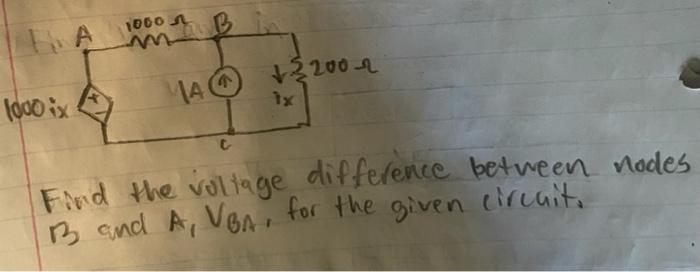 1000 Ω
A B
1A
200 Ω
ix
1000 ix
+
C
Find the voltage difference between nodes
B and A, VBA, for the given circuit.